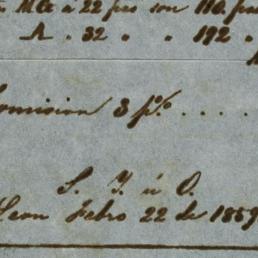 Mts á 22 pso son 110 pso
" 32 " " 192 "
Comision 3 p% . . . .
S. Y. ú O.
Leon Febro 22 de 1859